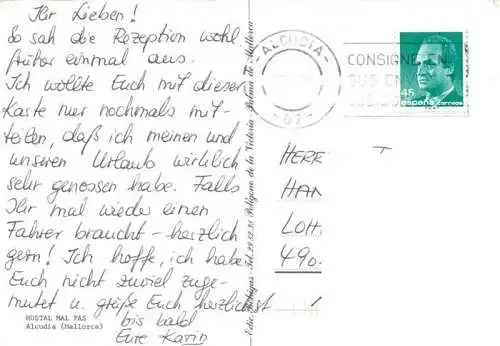 Ihr Lieben!
So sah die Rezeption wohl
früher einmal aus.
Ich wollte Euch mit dieser
Karte nur nochmals mit-
teilen, daß ich meinen und
unseren Urlaub wirklich
sehr genossen habe. Falls
Ihr mal wieder einen
Fahrer braucht - herzlich
gern! Ich hoffe, ich habe
Euch nicht zuviel zuge-
mutet u. grüße Euch herzlichst
bis bald
Eure Karin
HOSTAL MAL PAS
Alcudia (Mallorca)
Polígono de la Victoria Palma de Mallorca
-ALCUDIA-
-07-
CONSIGNE EN
SUS EN
45
españa correos
HERR
HAN
LOTH
490